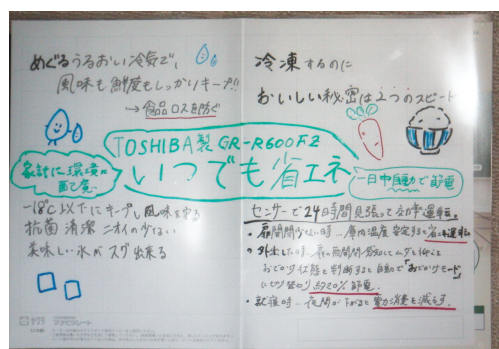 めぐるうるおい冷気で、
風味も鮮度もしっかりキープ!!
→ 食品ロスを防ぐ
冷凍するのに
おいしい秘密は2つのスピード
TOSHIBA製 GR-R600FZ
いつでも省エネ
家計に環境に
配慮
一日中自動で節電
-18℃以下にキープし風味を守る
抗菌 清潔 ニオイの少ない
美味しい氷がスグ出来る
センサーで24時間見張って効率運転
・扉開閉少ない時→庫内温度安定すると省エネ運転
おでかけ状態と判断すると自動で「おでかけモード」
に切り替わり約20%節電
・就寝時→夜間が下がると電力消費を減らす